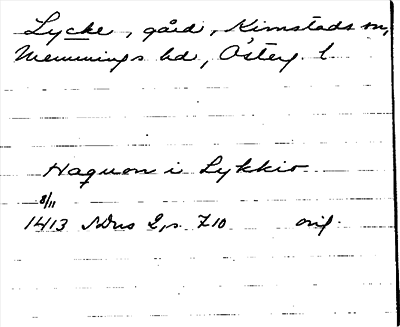 Lycke, gård, Kimstads sn,
Memmings hd, Österg. l.
Haquon i Lykkio
8/11
1413 SDns 2, s. 710 orig.